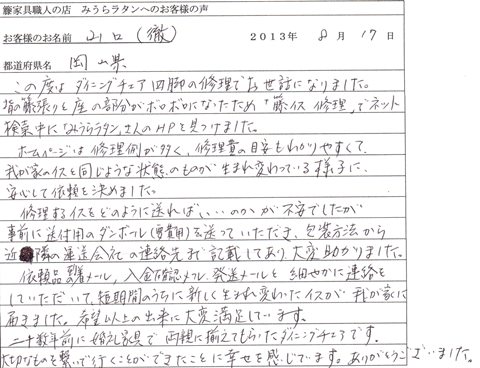 籐家具職人の店 みうらラタンへのお客様の声
お客様のお名前 山口(徹) 2013年 8月 17日
都道府県名 岡山県
この度はダイニングチェア四脚の修理でお世話になりました。
背の籐張りと座の部分がボロボロになったため「籐イス 修理」でネット
検索中に「みうらラタン」さんのHPを見つけました。
ホームページは修理例が多く、修理費の目安もわかりやすくて、
我が家のイスと同じような状態のものが生まれ変わっている様子に、
安心して依頼を決めました。
修理するイスをどのように送れば、、、のかが不安でしたが
事前に送付用のダンボール(実費用)を送っていただき、包装方法から
近隣の運送会社の連絡先まで記載してあり大変助かりました。
依頼品到着メール、入金確認メール、発送メールと細やかに連絡を
していただいて、短期間のうちに新しく生まれ変わったイスが我が家に
届きました。希望以上の出来に大変満足しています。
二十数年前に婚礼家具で両親に揃えてもらったダイニングチェアです。
大切なものを繋いで行くことができたことに幸せを感じています。ありがとうございました。